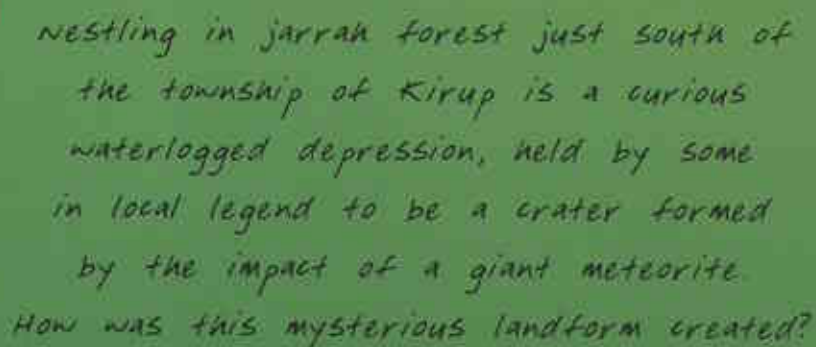 Nestling in jarrah forest just south of
the township of Kirup is a curious
waterlogged depression, held by some
in local legend to be a crater formed
by the impact of a giant meteorite.
How was this mysterious landform created?